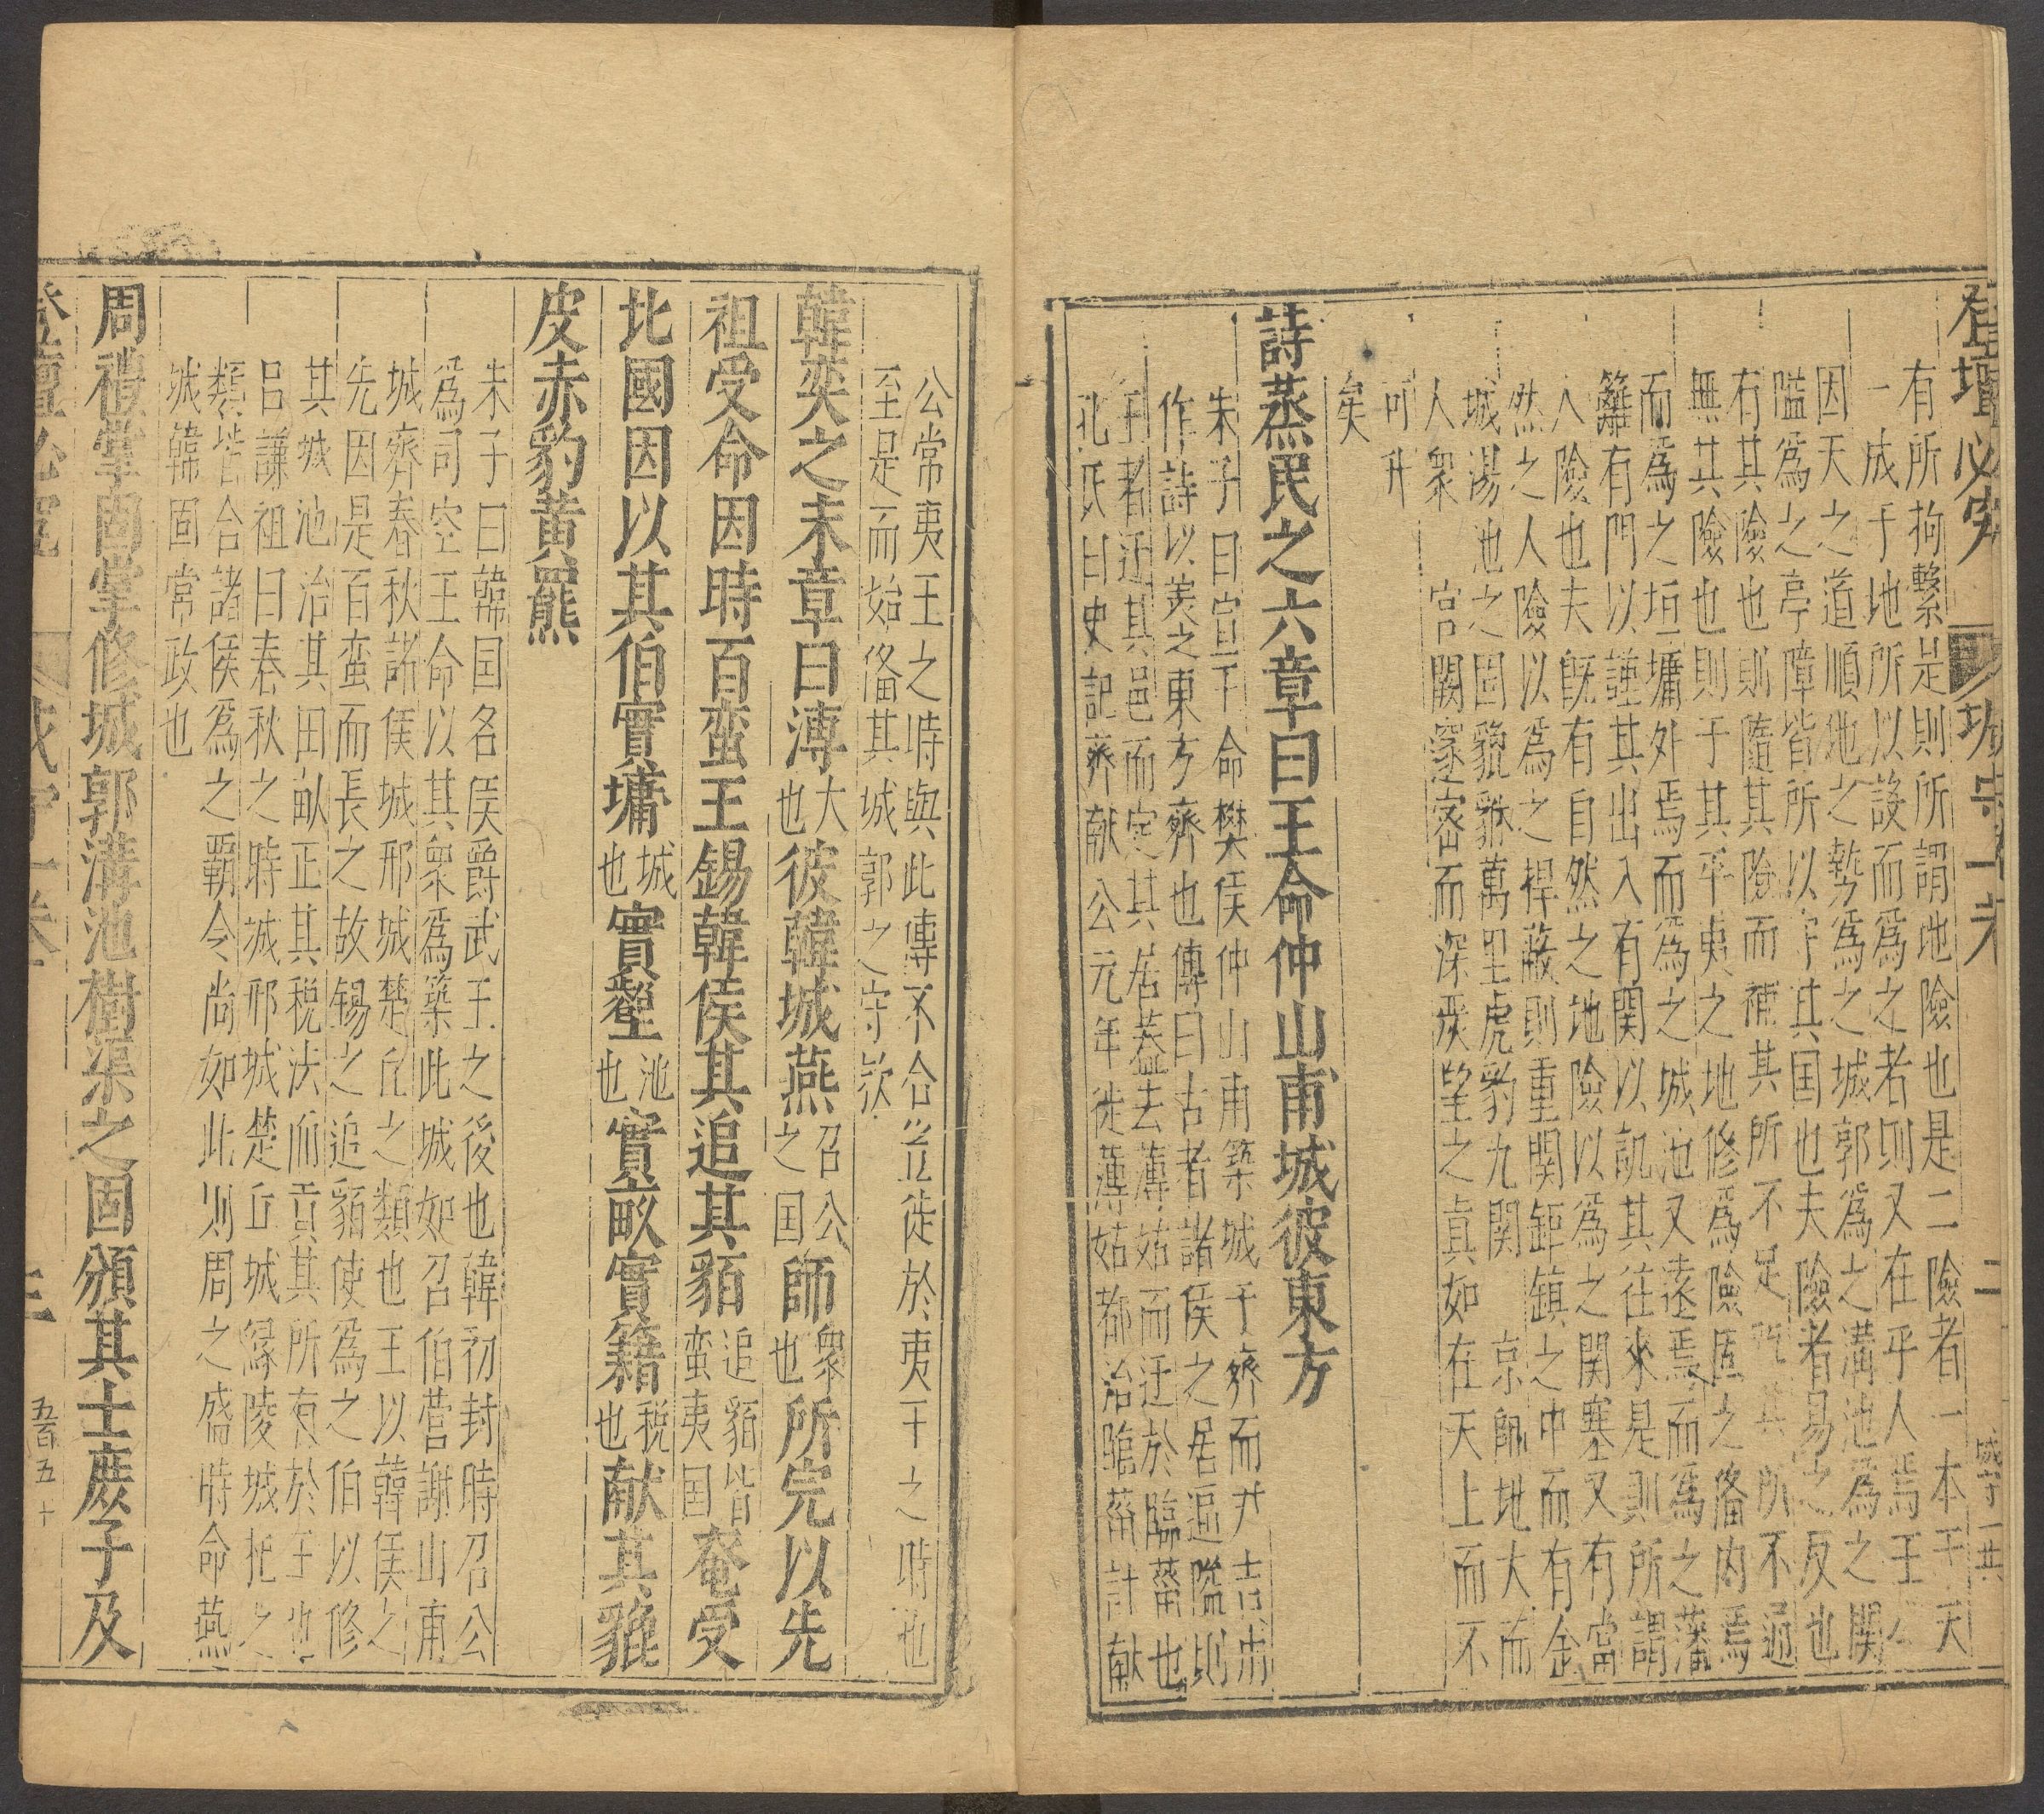 登壇必究 城守一卷 二 城守一 共
有所拘繫是則所謂地險也是二險者一本于天
一成于地所以設而為之者則又在乎人焉王公
因天之道順地之勢為之城郭為之溝池為之関
隘爲之亭障皆所以守其国也夫險者易之反也
有其險也則隨其險而補其所不足 其所不逼
無其險也則于其平夷之地修為險固之偹内焉
而爲之垣墉外焉而為之城池又遠焉而為之藩
籬有門以謹其出入有関以譏其往來是則所謂
人險也夫既有自然之地險以為之関塞又有當
然之人險以為之捍蔽則重関鉅鎮之中而有金
城湯池之固貔貅萬里虎豹九関 京師地大而
人衆 宮闕 密而深嚴望之真如在天上而不
可升
矣
詩蒸民之六章曰王命仲山甫城彼東方
朱子曰宣王命樊侯仲山甫築城于齊而尹吉甫
作詩以美之東方齊也傳曰古者諸侯之居逼隘則
王者迁其邑而定其居蓋去薄姑而迁於臨菑也
孔氏曰史記齊献公元年徙薄姑都治臨菑計献
公常夷王之時與此傳不合豈徙於夷王之時也
至是而始偹其城郭之守欤
韓奕之末章曰溥大也彼韓城燕召公之国師衆也所完以先
祖受命因時百蛮王錫韓侯其追其貊追貊皆蛮夷国奄受
北國因以其伯實墉城也實壑池也實畝實籍税也献其貔
皮赤豹黄羆
朱子曰韓国名侯爵武王之後也韓初封時召公
為司空王命以其衆爲築此城如召伯營謝山甫
城齊春秋諸侯城邢城楚丘之類也王以韓侯之
先因是百蛮而長之故錫之追貊使爲之伯以修
其城池治其田畝正其税法而貢其所有於王也
呂謙祖曰春秋之時城邢城楚丘城縁陵城杞之
類皆合諸侯爲之覇令尚如此則周之盛時命燕
城韓固常政也
周禮掌固掌修城郭溝池樹渠之固頒其士庶子及
登壇必究 城守一卷 三 五百五十